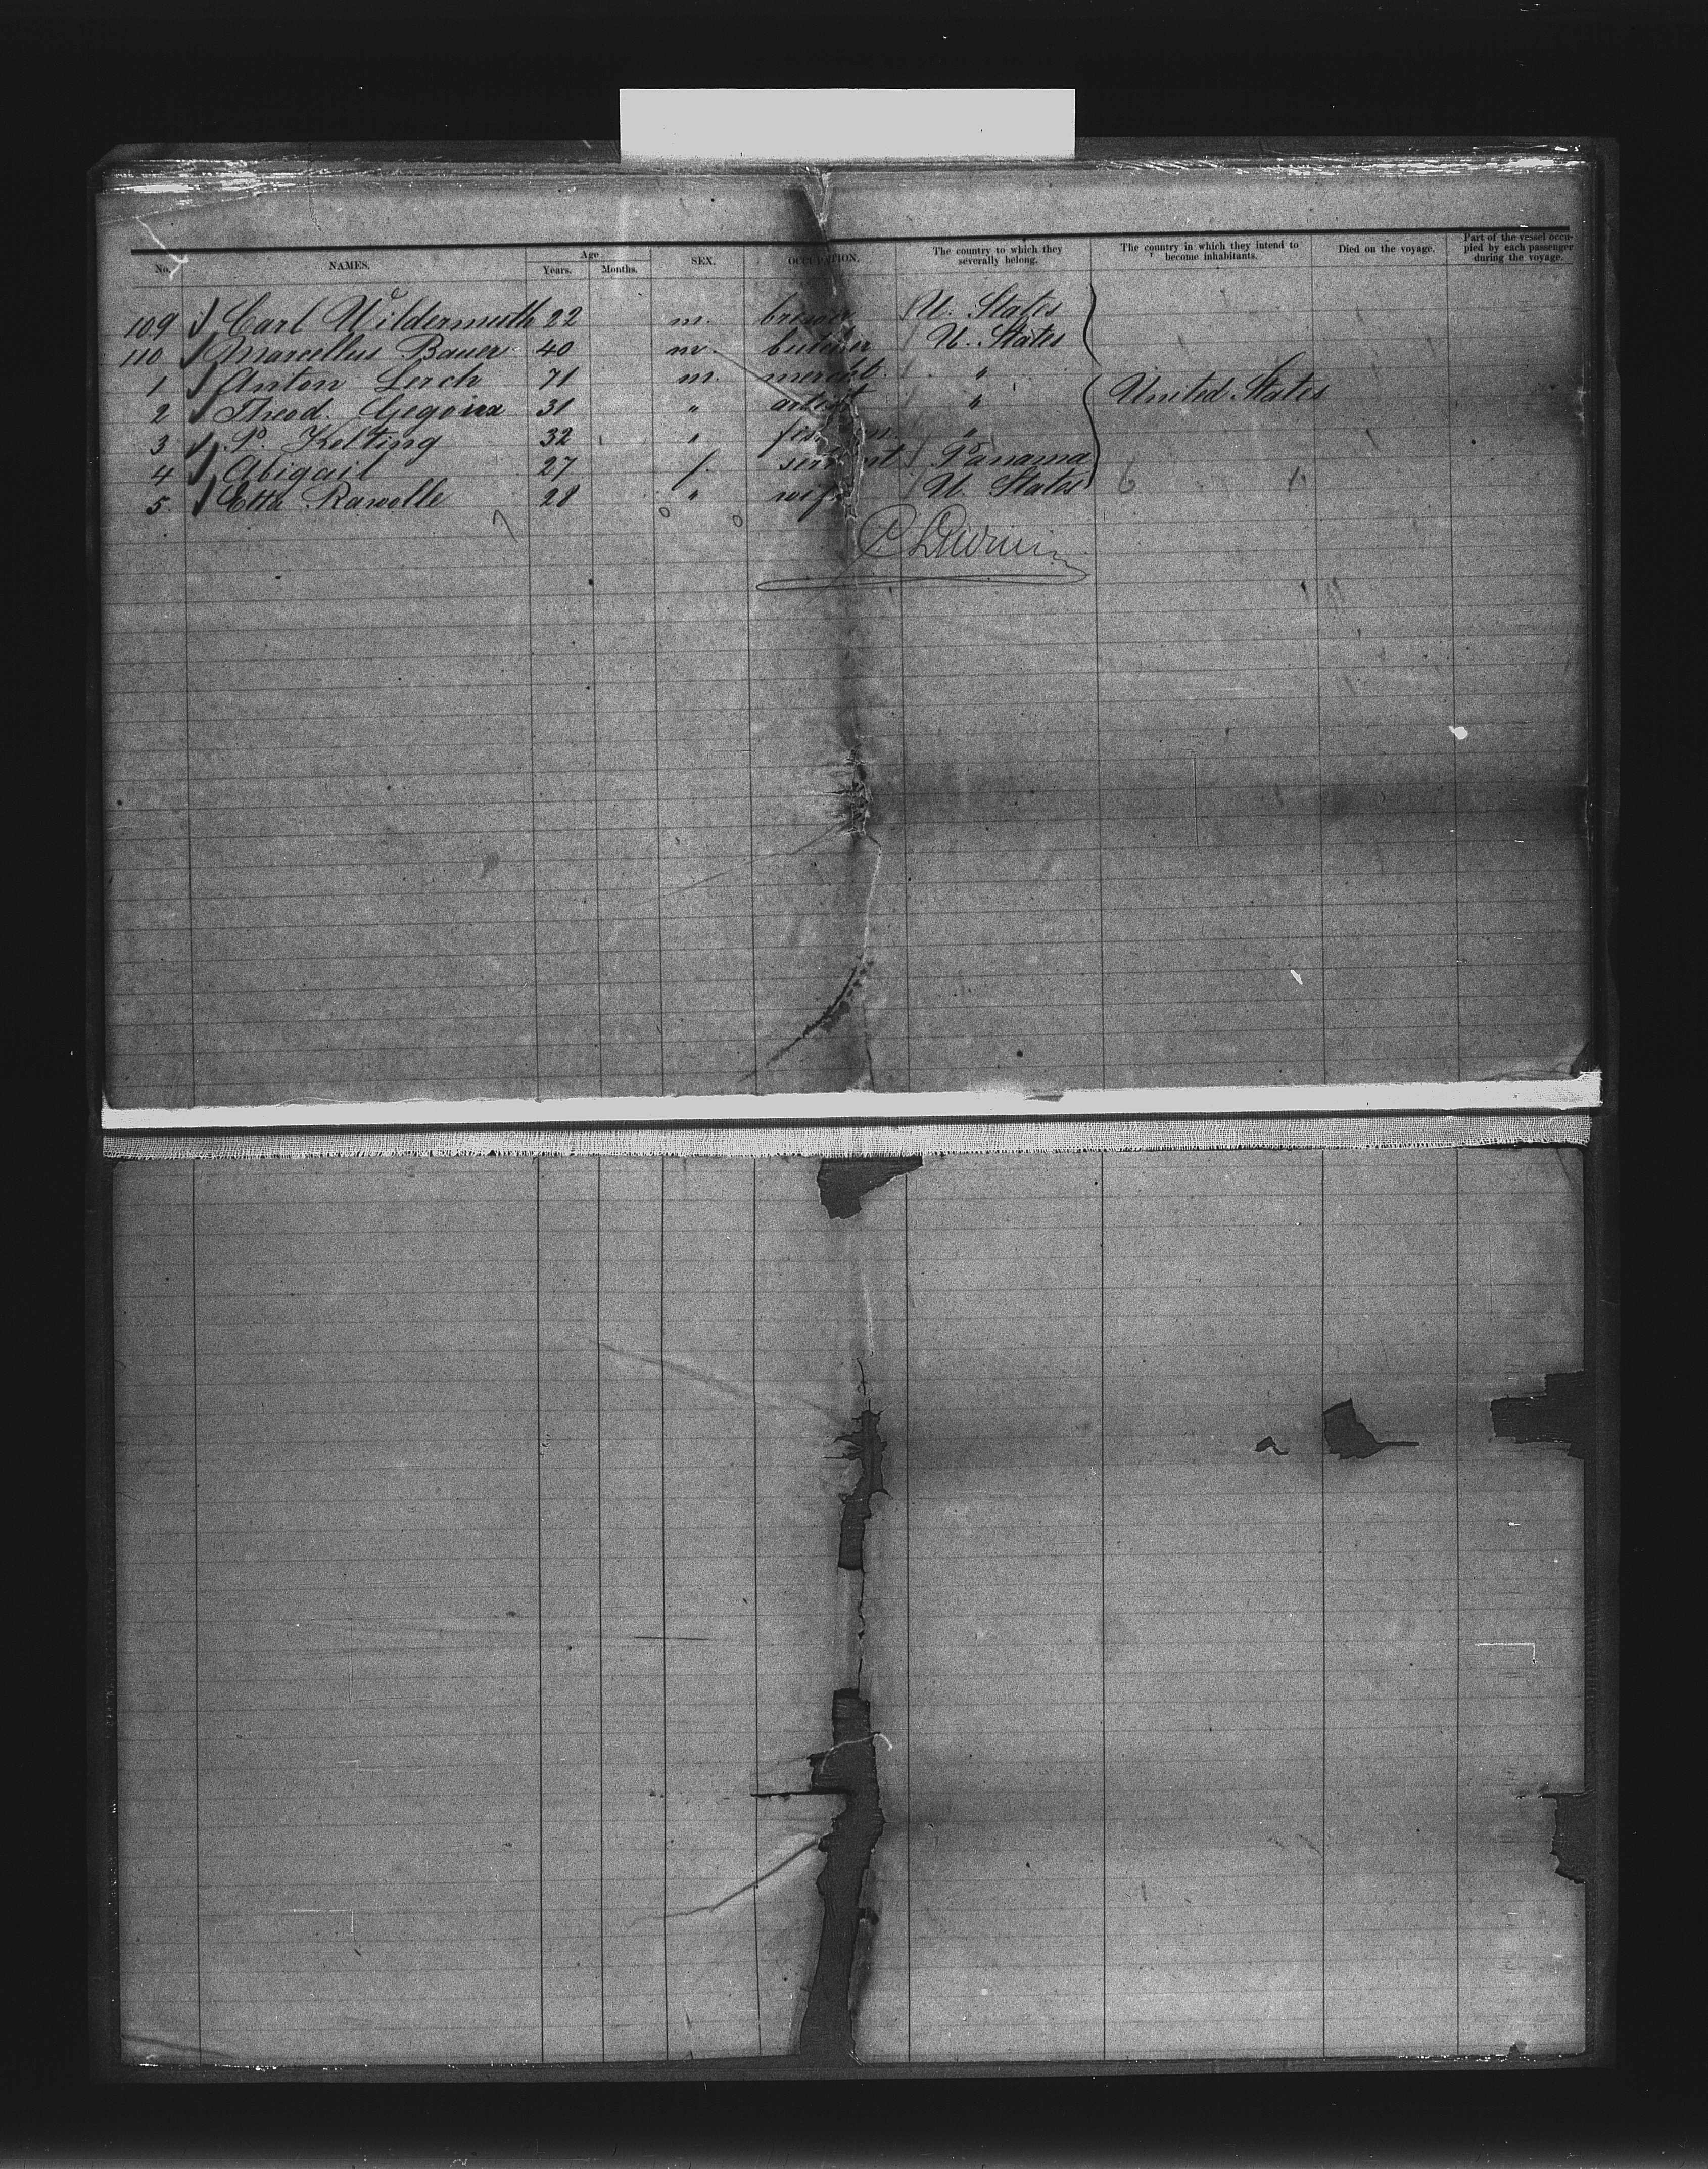 No. NAMES. Age Years. Months. SEX. OCCUPATION. The country to which they severally belong. The country in which they intend to become inhabitants. Died on the voyage. Part of the vessel occupied by each passenger during the voyage.
109 Carl Wildermuth 22 m. brewer U. States
110 Marcellus Bauer 40 m. butcher U. States
1 Anton Lerch 71 m. mercht. "
2 Theod. 31 " artist " United States
3 Kelting 32 " "
4 Abigail 27 f. servant Panama
5. Etta Rawolle 28 " wife U. States 6